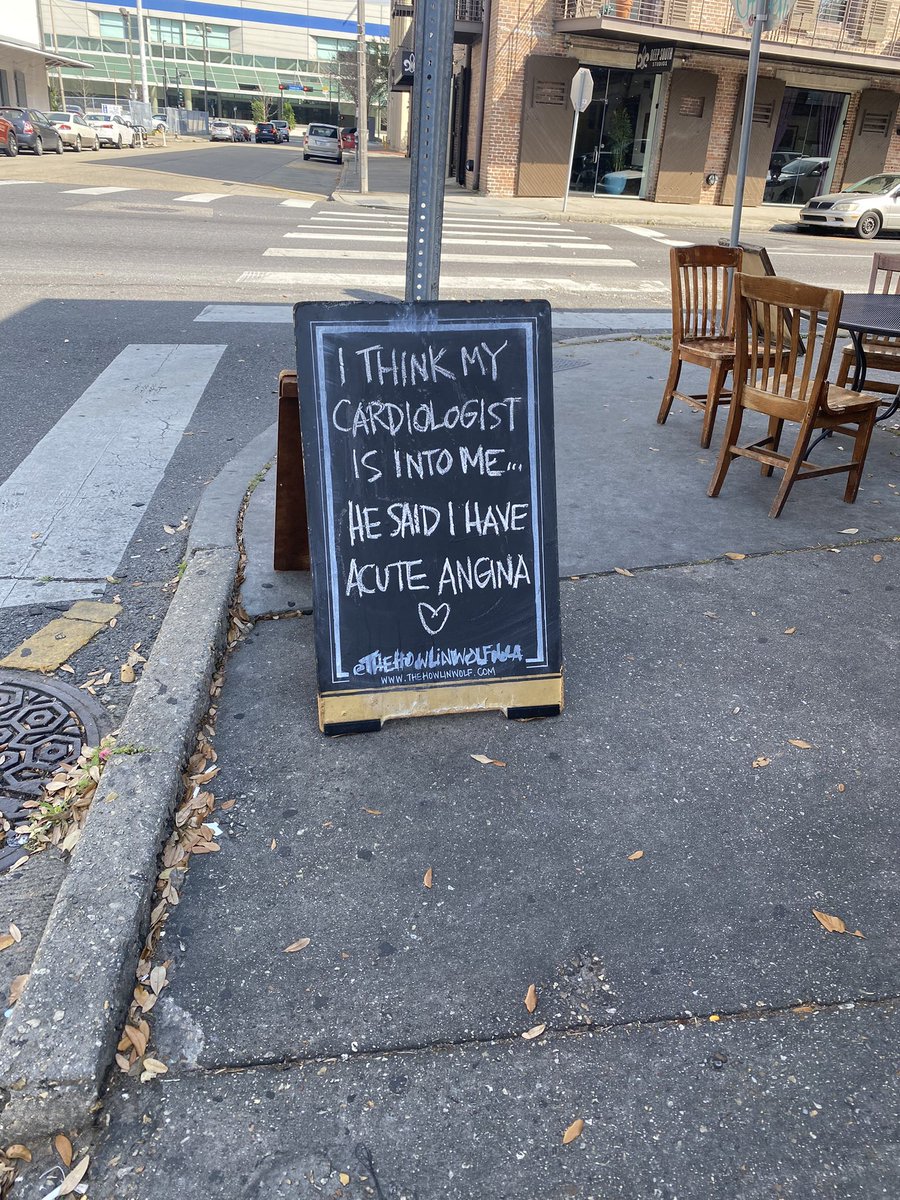 I THINK MY
CARDIOLOGIST
IS INTO ME...
HE SAID I HAVE
ACUTE ANGINA
@THEHOWLINWOLFNOLA
WWW.THEHOWLINWOLF.COM
DEEP SOUTH
STUDIOS